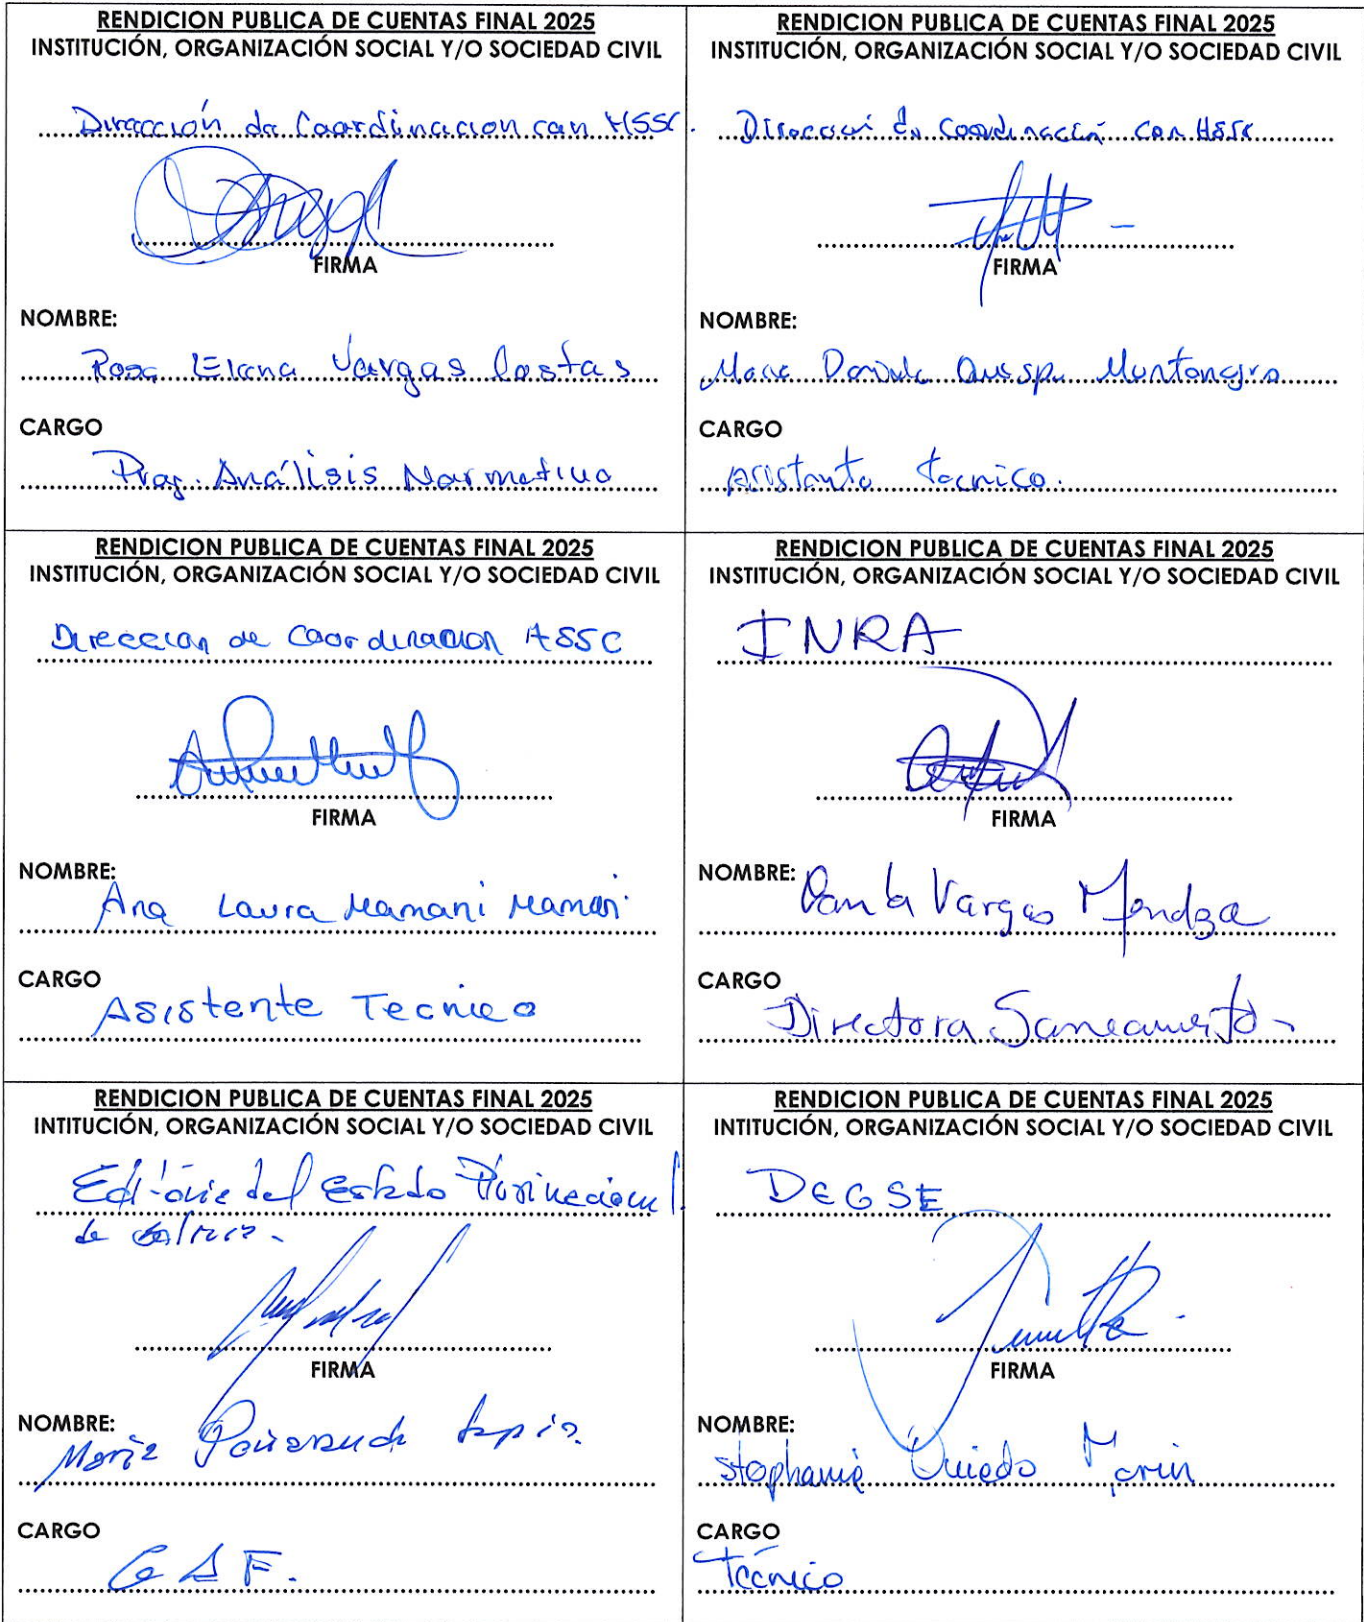 RENDICION PUBLICA DE CUENTAS FINAL 2025
INSTITUCIÓN, ORGANIZACIÓN SOCIAL Y/O SOCIEDAD CIVIL
Dirección de Coordinacion con HSSC.
FIRMA
NOMBRE:
Rosa Elena Vargas Costas
CARGO
Prof. Análisis Normativo
RENDICION PUBLICA DE CUENTAS FINAL 2025
INSTITUCIÓN, ORGANIZACIÓN SOCIAL Y/O SOCIEDAD CIVIL
Dirección de Coordinación con HSSC
FIRMA
NOMBRE:
Quispe Montenegro
CARGO
Asistente tecnico.
RENDICION PUBLICA DE CUENTAS FINAL 2025
INSTITUCIÓN, ORGANIZACIÓN SOCIAL Y/O SOCIEDAD CIVIL
Direccion de Coordinacion HSSC
FIRMA
NOMBRE:
Ana Laura Mamani Mamani
CARGO
Asistente Tecnico
RENDICION PUBLICA DE CUENTAS FINAL 2025
INSTITUCIÓN, ORGANIZACIÓN SOCIAL Y/O SOCIEDAD CIVIL
INRA
FIRMA
NOMBRE:
Vargas Mendoza
CARGO
Directora Saneamiento
RENDICION PUBLICA DE CUENTAS FINAL 2025
INTITUCIÓN, ORGANIZACIÓN SOCIAL Y/O SOCIEDAD CIVIL
Editorial del Estado Plurinacional
de Bolivia.
FIRMA
NOMBRE:
Maria Peñaranda Tapia
CARGO
RENDICION PUBLICA DE CUENTAS FINAL 2025
INTITUCIÓN, ORGANIZACIÓN SOCIAL Y/O SOCIEDAD CIVIL
DEGSE
FIRMA
NOMBRE:
Stephanie Oviedo Marin
CARGO
Técnico